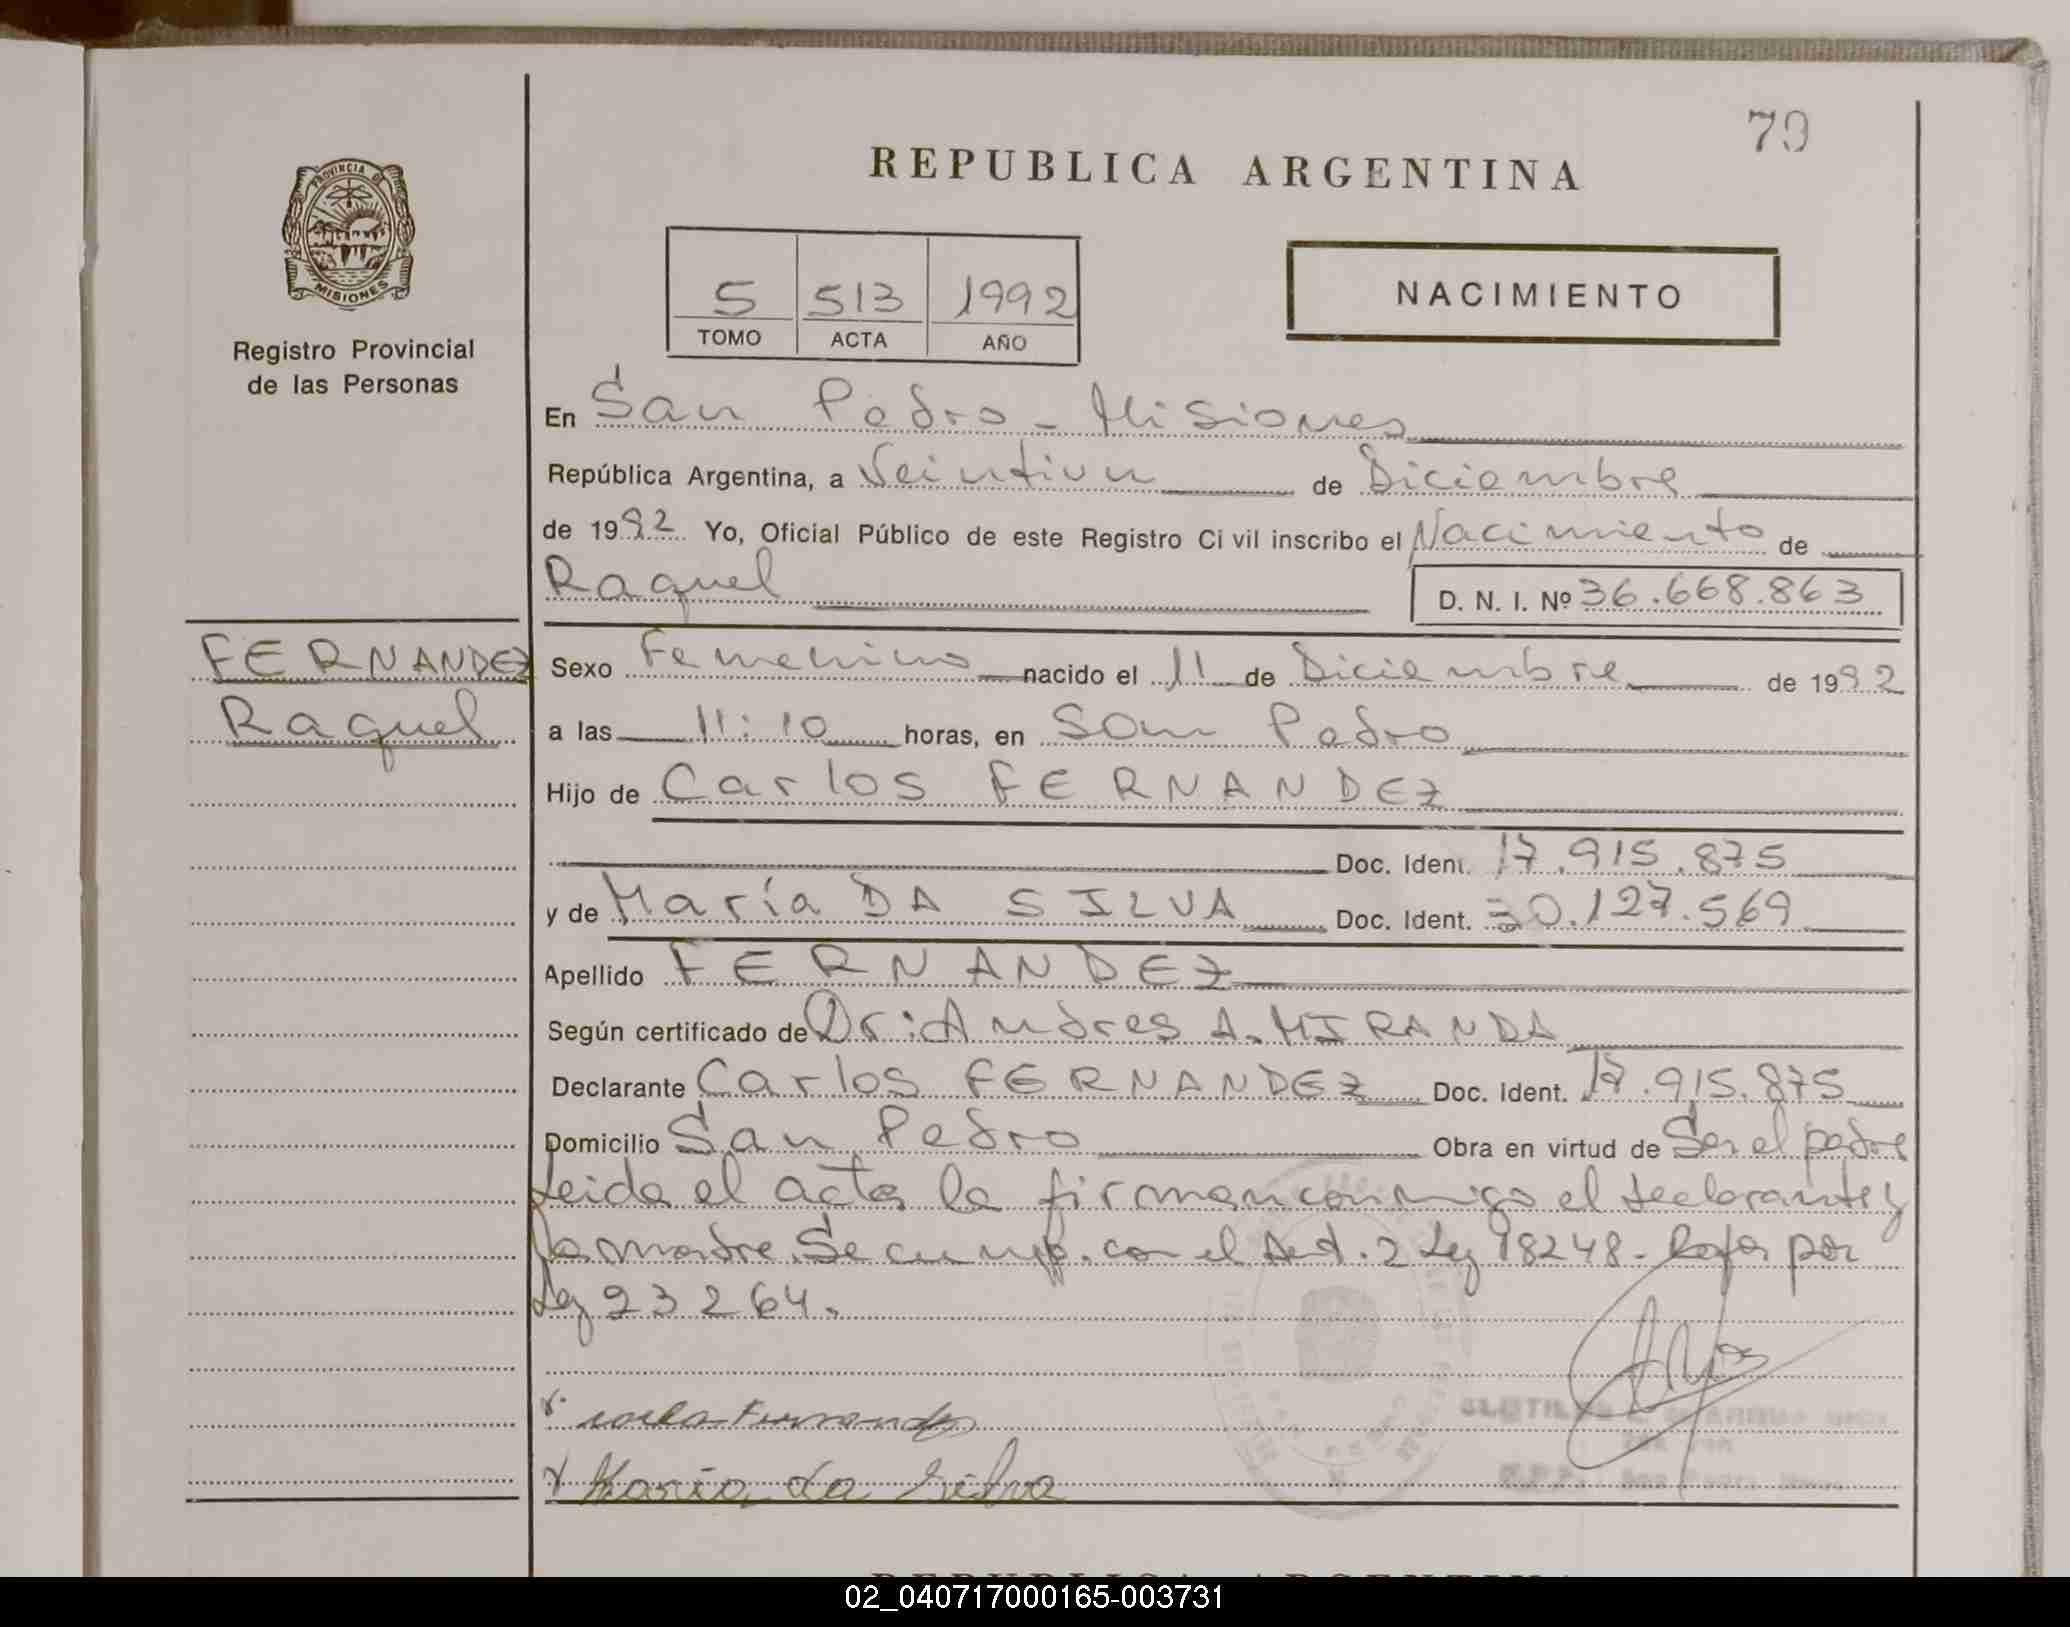 79
REPUBLICA ARGENTINA
PROVINCIA DE
MISIONES
Registro Provincial
de las Personas
5 513 1992
TOMO ACTA AÑO
NACIMIENTO
En San Pedro - Misiones
República Argentina, a Veintiun de Diciembre
de 1992 Yo, Oficial Público de este Registro Civil inscribo el Nacimiento de
Raquel D. N. I. Nº 36.668.863
FERNANDEZ
Raquel
Sexo Femenino nacido el 11 de Diciembre de 1992
a las 11:10 horas, en San Pedro
Hijo de Carlos FERNANDEZ
Doc. Ident. 17.915.875
y de María DA SILVA Doc. Ident. 30.127.569
Apellido FERNANDEZ
Según certificado de Dr: Andres A. MIRANDA
Declarante Carlos FERNANDEZ Doc. Ident. 17.915.875
Domicilio San Pedro Obra en virtud de Ser el padre
Leida el acta la firman conmigo el declarante y
la madre. Se cump. con el Art. 2 Ley 18248. por
Ley 23264.
Fernandez
Maria da Silva
REPUBLICA ARGENTINA
02_040717000165-003731